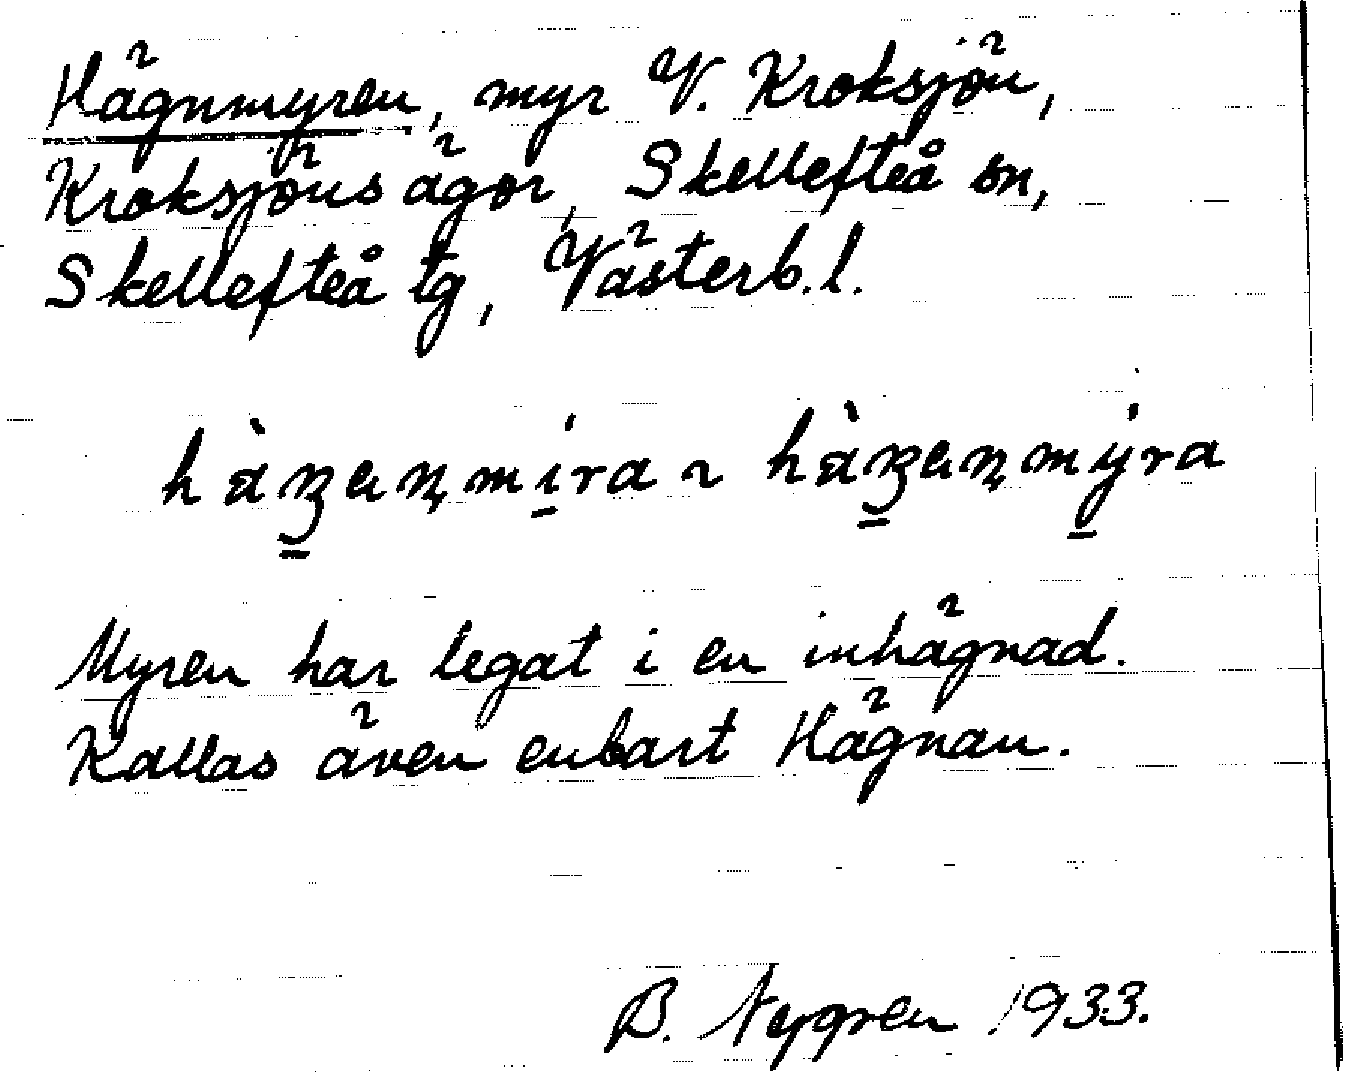 Hägnmyren, myr V. Kroksjön,
Kroksjöns ägor, Skellefteå sn,
Skellefteå tg, Västerb. l.
Myren har legat i en inhägnad.
Kallas även enbart Hägnan.
B. Nygren 1933.